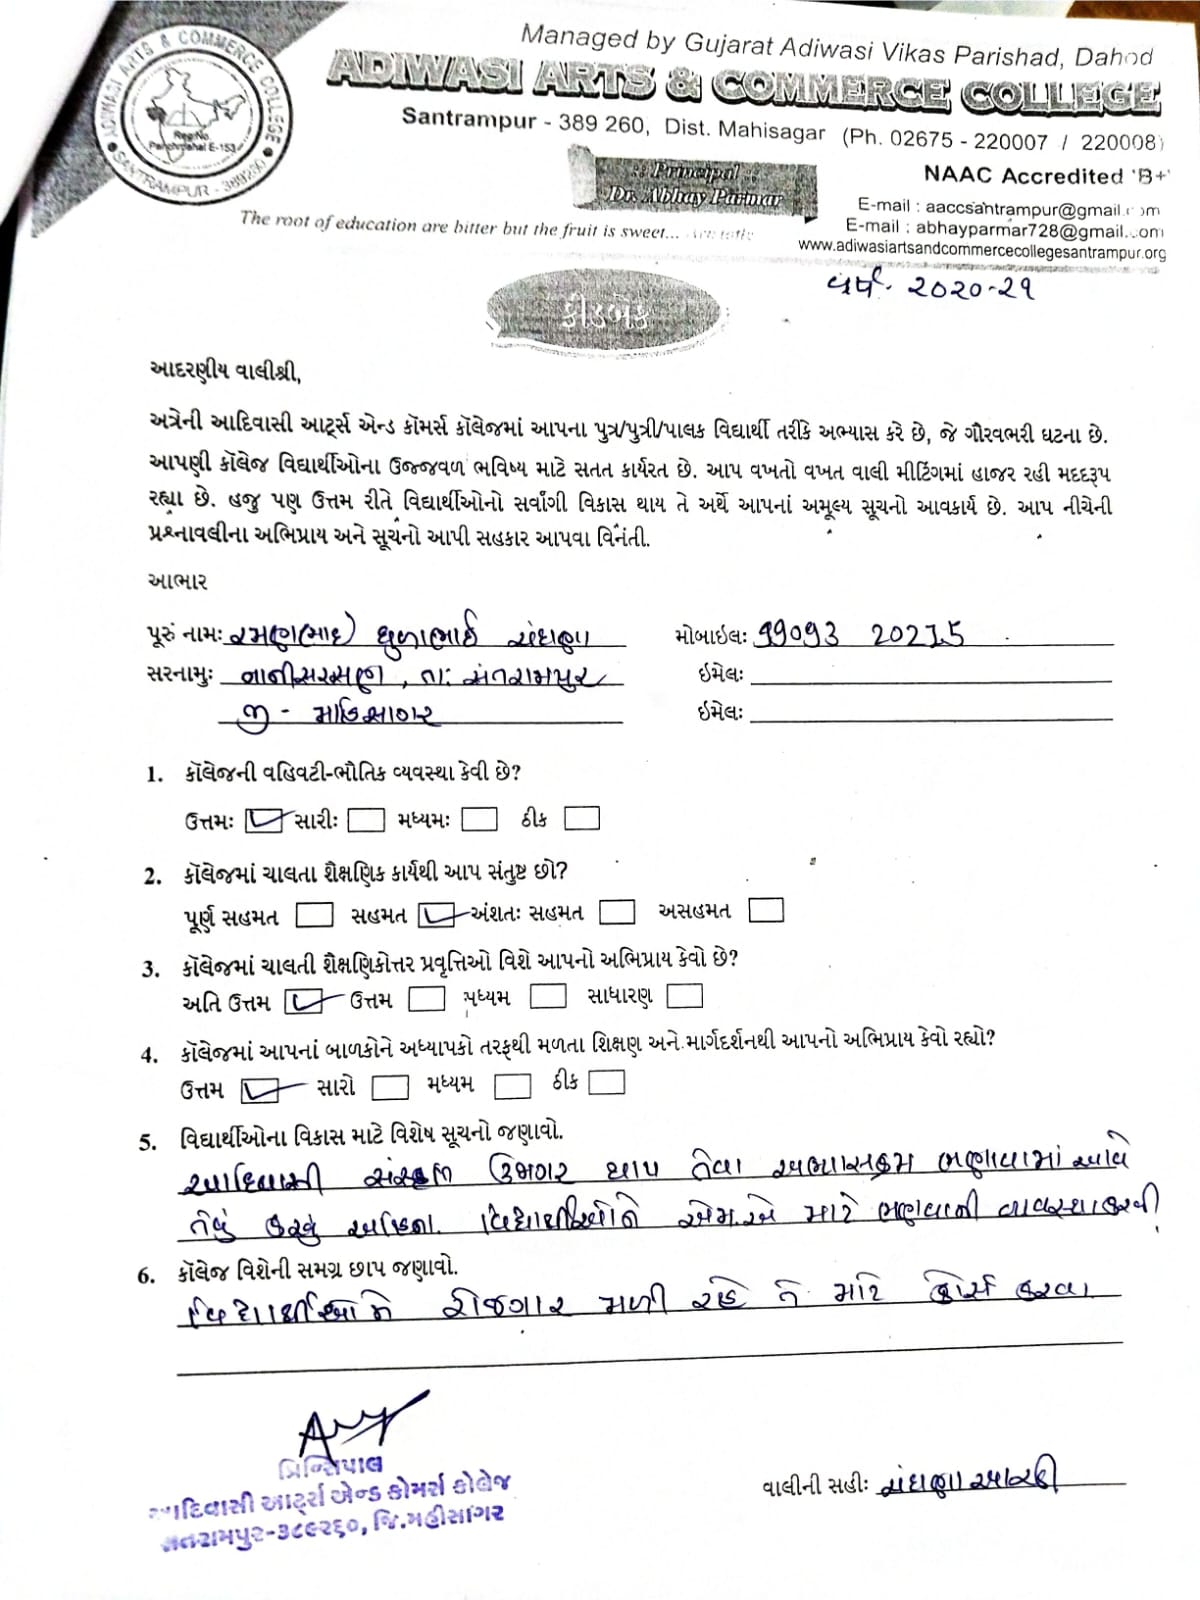 ADIWASI ARTS & COMMERCE COLLEGE
Reg.No.
Panchmahal E-153
SANTRAMPUR - 389260
Managed by Gujarat Adiwasi Vikas Parishad, Dahod
ADIWASI ARTS & COMMERCE COLLEGE
Santrampur - 389 260, Dist. Mahisagar (Ph. 02675 - 220007 / 220008)
:: Principal ::
Dr. Abhay Parmar
NAAC Accredited 'B+'
E-mail : aaccsantrampur@gmail.com
E-mail : abhayparmar728@gmail.com
The root of education are bitter but the fruit is sweet...
www.adiwasiartsandcommercecollegesantrampur.org
વર્ષ. ૨૦૨૦-૨૧
ફીડબેક
આદરણીય વાલીશ્રી,
અત્રેની આદિવાસી આર્ટ્સ એન્ડ કૉમર્સ કૉલેજમાં આપના પુત્ર/પુત્રી/પાલક વિદ્યાર્થી તરીકે અભ્યાસ કરે છે, જે ગૌરવભરી ઘટના છે.
આપણી કૉલેજ વિદ્યાર્થીઓના ઉજ્જવળ ભવિષ્ય માટે સતત કાર્યરત છે. આપ વખતો વખત વાલી મીટિંગમાં હાજર રહી મદદરૂપ
રહ્યા છે. હજુ પણ ઉત્તમ રીતે વિદ્યાર્થીઓનો સર્વાંગી વિકાસ થાય તે અર્થે આપનાં અમૂલ્ય સૂચનો આવકાર્ય છે. આપ નીચેની
પ્રશ્નાવલીના અભિપ્રાય અને સૂચનો આપી સહકાર આપવા વિનંતી.
આભાર
પૂરું નામઃ રમણભાઈ ધુળાભાઈ સંઘાણા મોબાઇલઃ 99093 20275
સરનામુઃ નાનીસરસણ, તા: સંતરામપુર ઇમેલઃ
જી - મહિસાગર ઇમેલઃ
1. કૉલેજની વહિવટી-ભૌતિક વ્યવસ્થા કેવી છે?
ઉત્તમઃ સારીઃ મધ્યમઃ ઠીક
2. કૉલેજમાં ચાલતા શૈક્ષણિક કાર્યથી આપ સંતુષ્ટ છો?
પૂર્ણ સહમત સહમત અંશતઃ સહમત અસહમત
3. કૉલેજમાં ચાલતી શૈક્ષણિકોત્તર પ્રવૃત્તિઓ વિશે આપનો અભિપ્રાય કેવો છે?
અતિ ઉત્તમ ઉત્તમ મધ્યમ સાધારણ
4. કૉલેજમાં આપનાં બાળકોને અધ્યાપકો તરફથી મળતા શિક્ષણ અને માર્ગદર્શનથી આપનો અભિપ્રાય કેવો રહ્યો?
ઉત્તમ સારો મધ્યમ ઠીક
5. વિદ્યાર્થીઓના વિકાસ માટે વિશેષ સૂચનો જણાવો.
આદિવાસી ઉજાગર થાય તેવા અભ્યાસક્રમ ભણાવામાં આવે
તેવું કરવું વિદ્યાર્થીઓને એમ.એ માટે ભણવાની વ્યવસ્થા કરવી
6. કૉલેજ વિશેની સમગ્ર છાપ જણાવો.
વિદ્યાર્થીઓને રોજગાર મળી રહે તે માટે કોર્સ કરવા
પ્રિન્સિપાલ
આદિવાસી આર્ટ્સ એન્ડ કોમર્સ કોલેજ
સંતરામપુર-૩૮૯૨૬૦, જિ.મહીસાગર
વાલીની સહીઃ